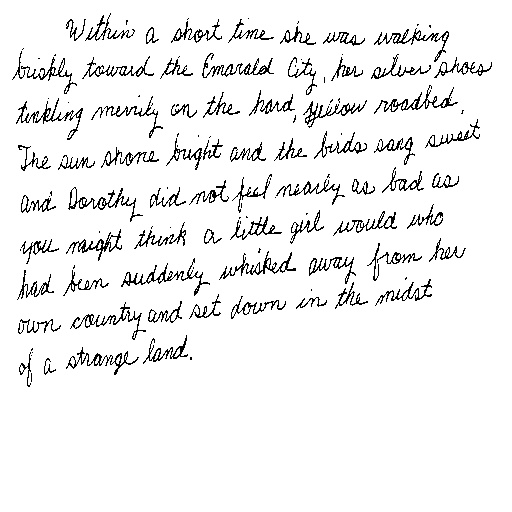 Within a short time she was walking
briskly toward the Emerald City, her silver shoes
tinkling merrily on the hard, yellow roadbed.
The sun shone bright and the birds sang sweet
and Dorothy did not feel nearly as bad as
you might think a little girl would who
had been suddenly whisked away from her
own country and set down in the midst
of a strange land.